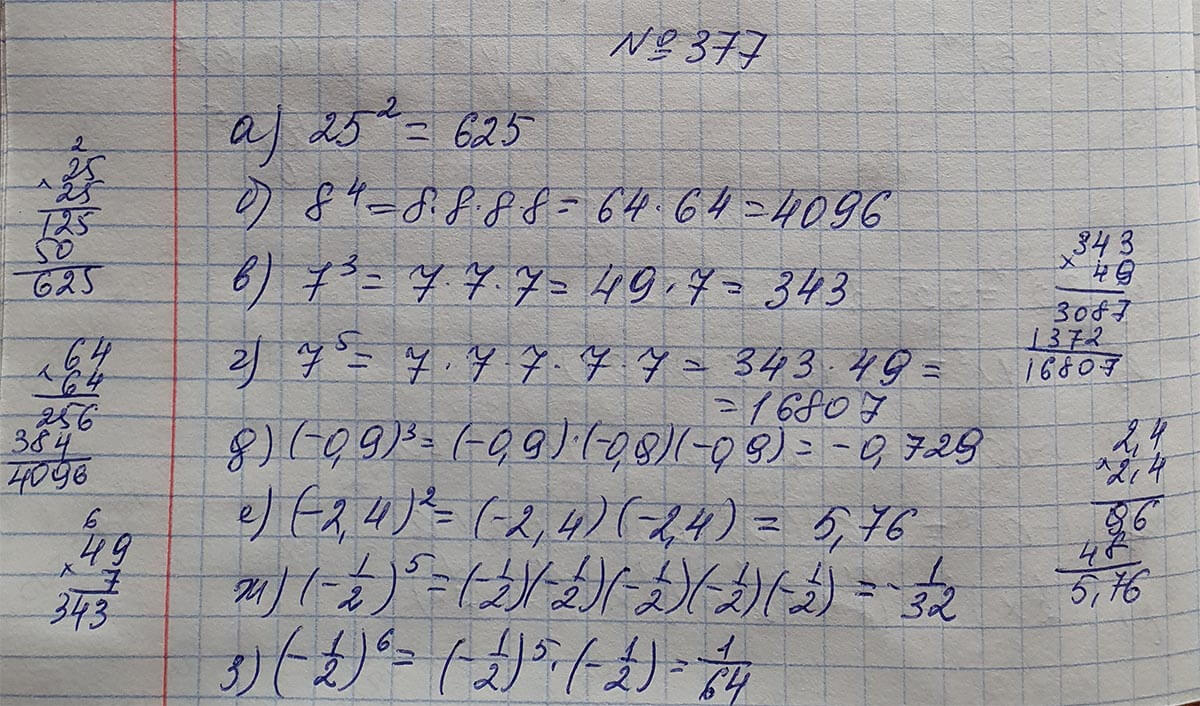 № 377
а) 25² = 625
б) 8⁴ = 8·8·8·8 = 64·64 = 4096
в) 7³ = 7·7·7 = 49·7 = 343
г) 7⁵ = 7·7 7·7·7 = 343·49 =
= 16807
д) (-0,9)³ = (-0,9)·(-0,9)(-0,9) = -0,729
е) (-2,4)² = (-2,4)(-2,4) = 5,76
ж) (-1/2)⁵ = (-1/2)(-1/2)(-1/2)(-1/2)(-1/2) = -1/32
з) (-1/2)⁶ = (-1/2)⁵·(-1/2) = 1/64
2
25
× 25
125
50
625
64
× 64
256
384
4096
6
49
× 7
343
343
× 49
3087
1372
16807
2,4
× 2,4
96
48
5,76